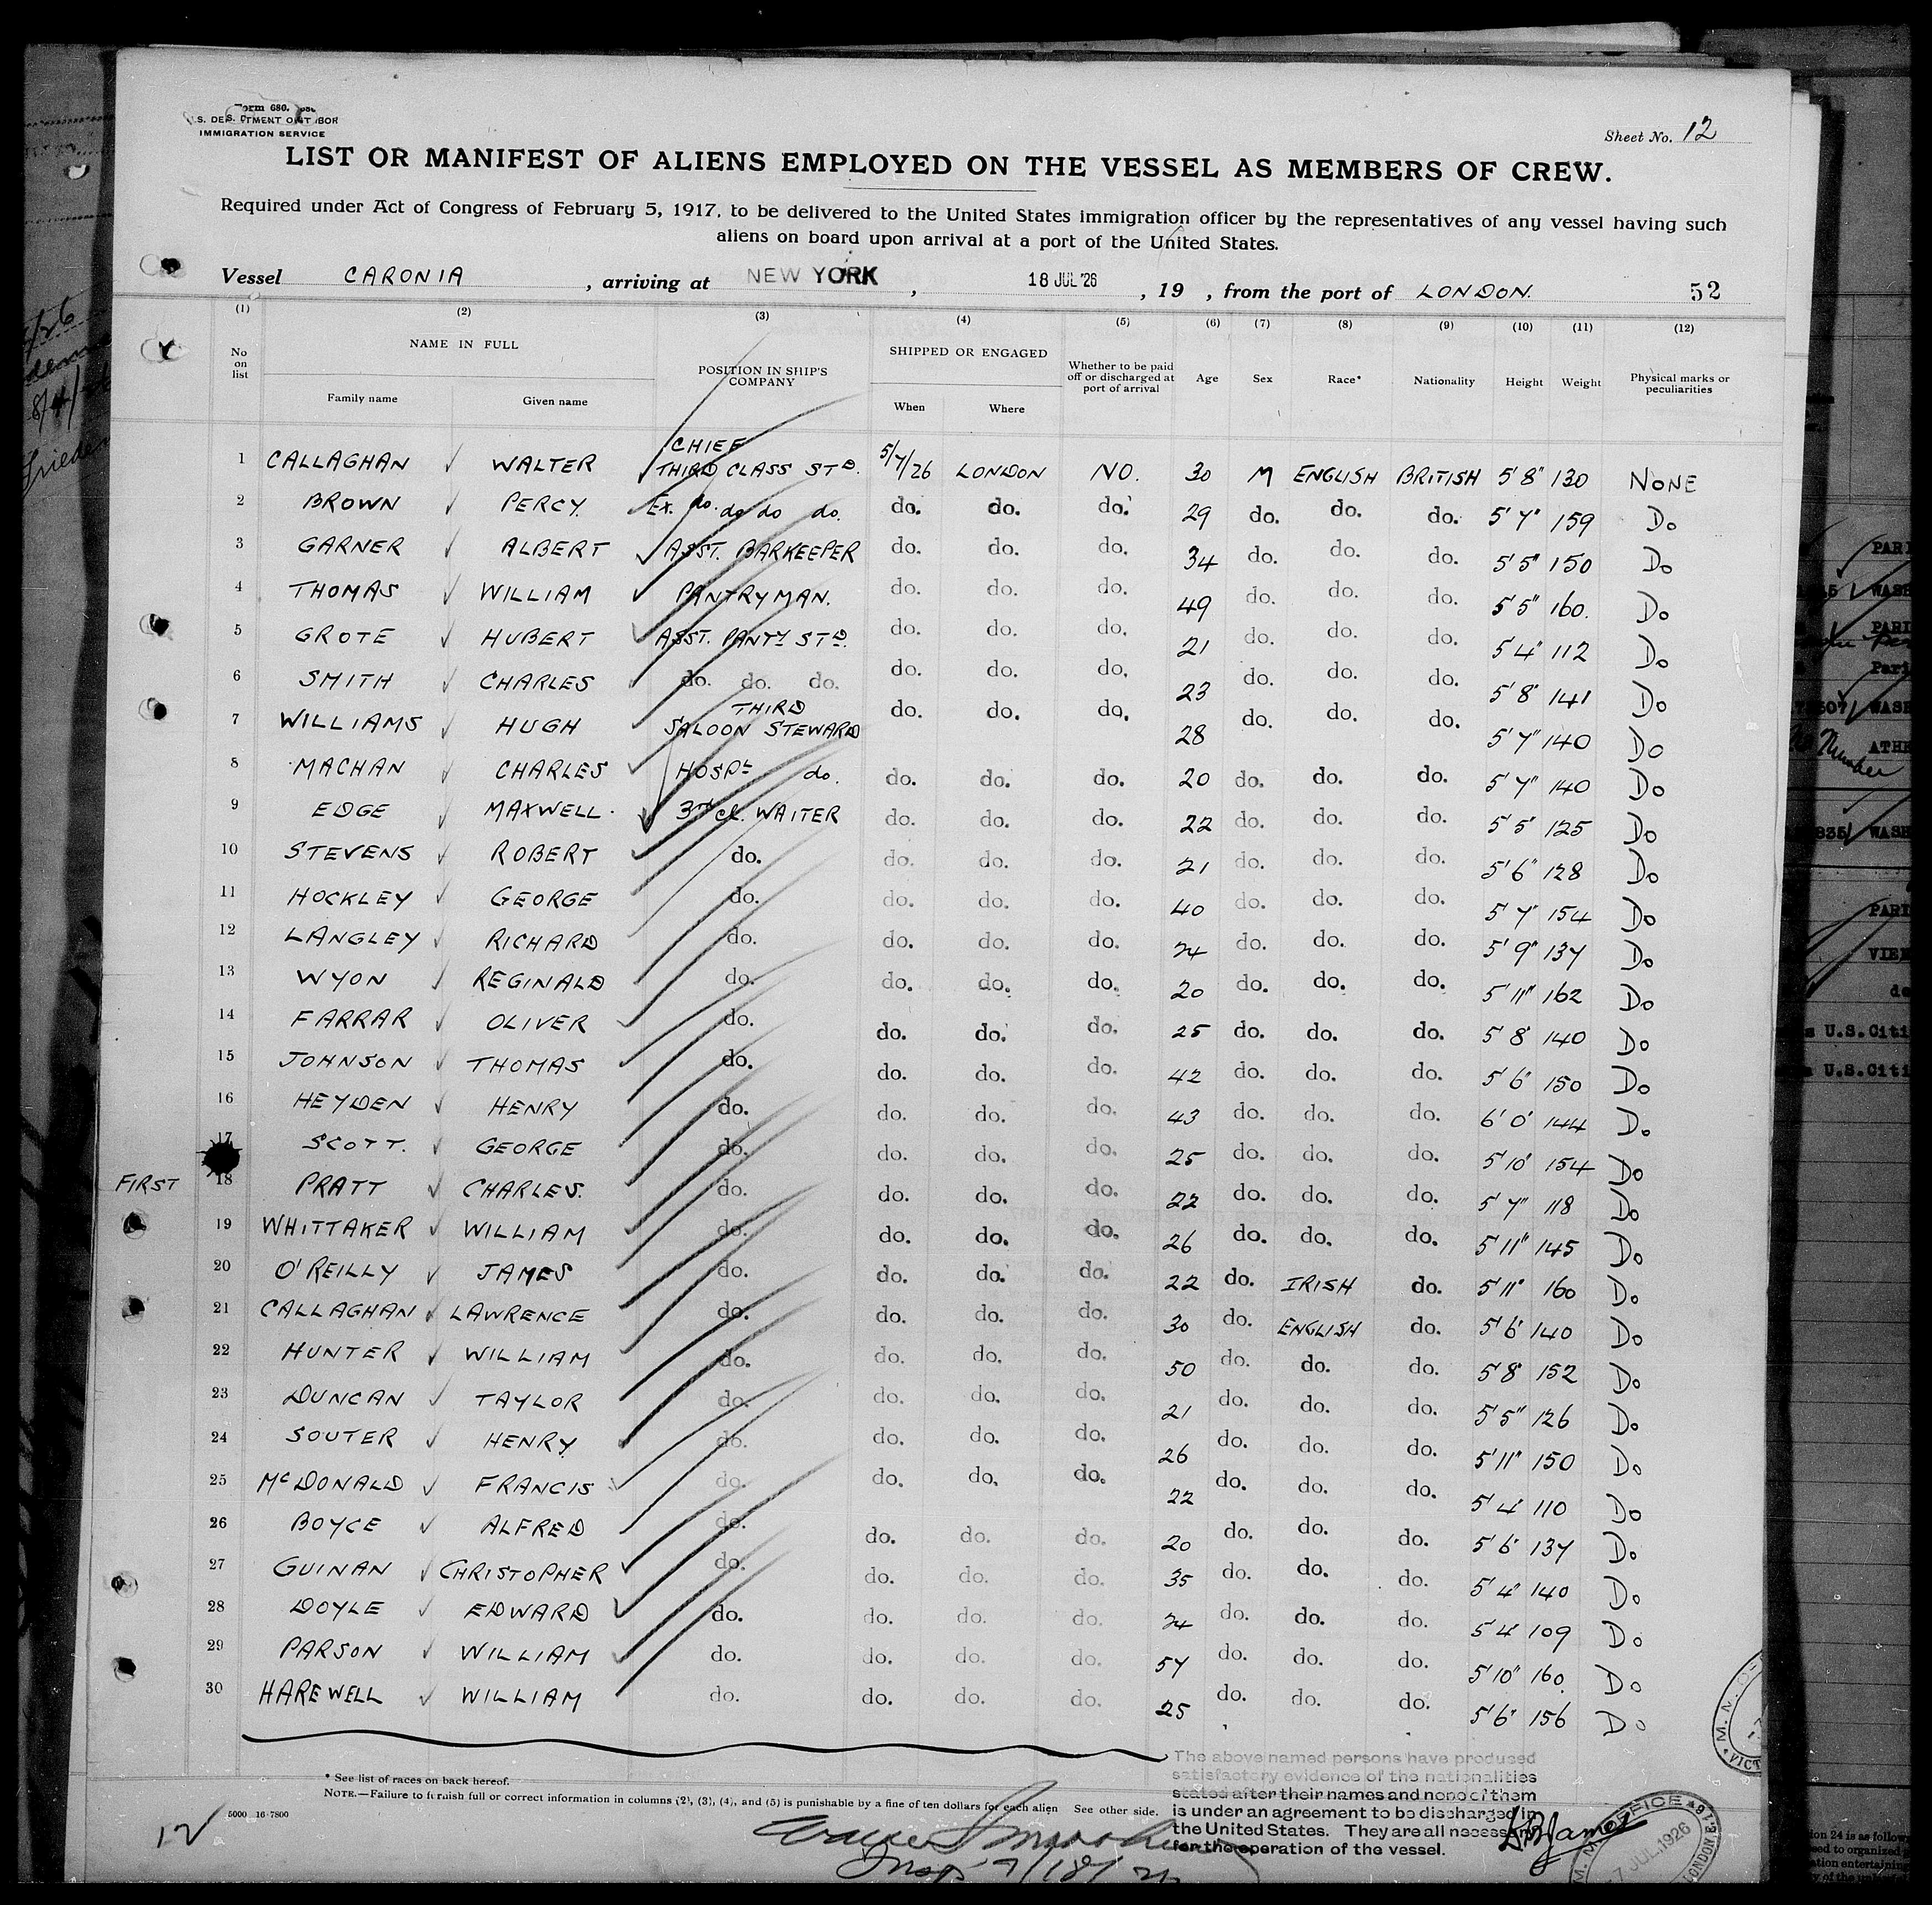 Form 680.
IMMIGRATION SERVICE
Sheet No. 12
LIST OR MANIFEST OF ALIENS EMPLOYED ON THE VESSEL AS MEMBERS OF CREW.
Required under Act of Congress of February 5, 1917, to be delivered to the United States immigration officer by the representatives of any vessel having such
aliens on board upon arrival at a port of the United States.
Vessel CARONIA , arriving at NEW YORK , 18 JUL '26 , 19 , from the port of LONDON. 52
(1) (2) (3) (4) (5) (6) (7) (8) (9) (10) (11) (12)
No on list NAME IN FULL Family name Given name POSITION IN SHIP'S COMPANY SHIPPED OR ENGAGED When Where Whether to be paid off or discharged at port of arrival Age Sex Race* Nationality Height Weight Physical marks or peculiarities
1 CALLAGHAN WALTER CHIEF THIRD CLASS STD. 5/7/26 LONDON NO. 30 M ENGLISH BRITISH 5'8" 130 NONE
2 BROWN PERCY. Ex. do. do do do. do. do. do. 29 do. do. do. 5'7" 159 Do
3 GARNER ALBERT ASST. BARKEEPER do. do. do. 34 do. do. do. 5'5" 150 Do
4 THOMAS WILLIAM PANTRYMAN. do. do. do. 49 do. do. do. 5'5" 160. Do
5 GROTE HUBERT ASST. PANTY STD. do. do. do. 21 do. do. do. 5'4" 112 Do
6 SMITH CHARLES do. do. do. do. do. do. 23 do. do. do. 5'8" 141 Do
7 WILLIAMS HUGH THIRD SALOON STEWARD do. do. do. 28 do. do. do. 5'7" 140 Do
8 MACHAN CHARLES HOSPL do. do. do. do. 20 do. do. do. 5'7" 140 Do
9 EDGE MAXWELL. 3RD Cl. WAITER do. do. do. 22 do. do. do. 5'5' 125 Do
10 STEVENS ROBERT do. do. do. do. 21 do. do. do. 5'6" 128 Do
11 HOCKLEY GEORGE do. do. do. do. 40 do. do. do. 5'7" 154 Do
12 LANGLEY RICHARD do. do. do. do. 24 do. do. do. 5'9" 137 Do
13 WYON REGINALD do. do. do. do. 20 do. do. do. 5'11" 162 Do
14 FARRAR OLIVER do. do. do. do. 25 do. do. do. 5'8 140 Do
15 JOHNSON THOMAS do. do. do. do. 42 do. do. do. 5'6' 150 Do
16 HEYDEN HENRY do. do. do. do. 43 do. do. do. 6'0' 144 Do
17 SCOTT. GEORGE do. do. do. do. 25 do. do. do. 5'10' 154 Do
FIRST 18 PRATT CHARLES. do. do. do. do. 22 do. do. do. 5'7" 118 Do
19 WHITTAKER WILLIAM do. do. do. do. 26 do. do. do. 5'11" 145 Do
20 O'REILLY JAMES do. do. do. do. 22 do. IRISH do. 5'11" 160 Do
21 CALLAGHAN LAWRENCE do. do. do. do. 30 do. ENGLISH do. 5'6' 140 Do
22 HUNTER WILLIAM do. do. do. do. 50 do. do. do. 5'8' 152 Do
23 DUNCAN TAYLOR do. do. do. do. 21 do. do. do. 5'5" 126 Do
24 SOUTER HENRY do. do. do. do. 26 do. do. do. 5'11" 150 Do
25 McDONALD FRANCIS do. do. do. do. 22 do. do. do. 5'4' 110 Do
26 BOYCE ALFRED do. do. do. do. 20 do. do. do. 5'6' 137 Do
27 GUINAN CHRISTOPHER do. do. do. do. 35 do. do. do. 5'4' 140 Do
28 DOYLE EDWARD do. do. do. do. 24 do. do. do. 5'4' 109 Do
29 PARSON WILLIAM do. do. do. do. 57 do. do. do. 5'10" 160. Do
30 HAREWELL WILLIAM do. do. do. do. 25 do. do. do. 5'6" 156 Do
The above named persons have produced
satisfactory evidence of the nationalities
stated after their names and none of them
is under an agreement to be discharged in
the United States. They are all necessary
for the operation of the vessel.
* See list of races on back hereof.
NOTE.—Failure to furnish full or correct information in columns (2), (3), (4), and (5) is punishable by a fine of ten dollars for each alien See other side.
5000 16-7800
12
7/18/26
7 JUL. 1926